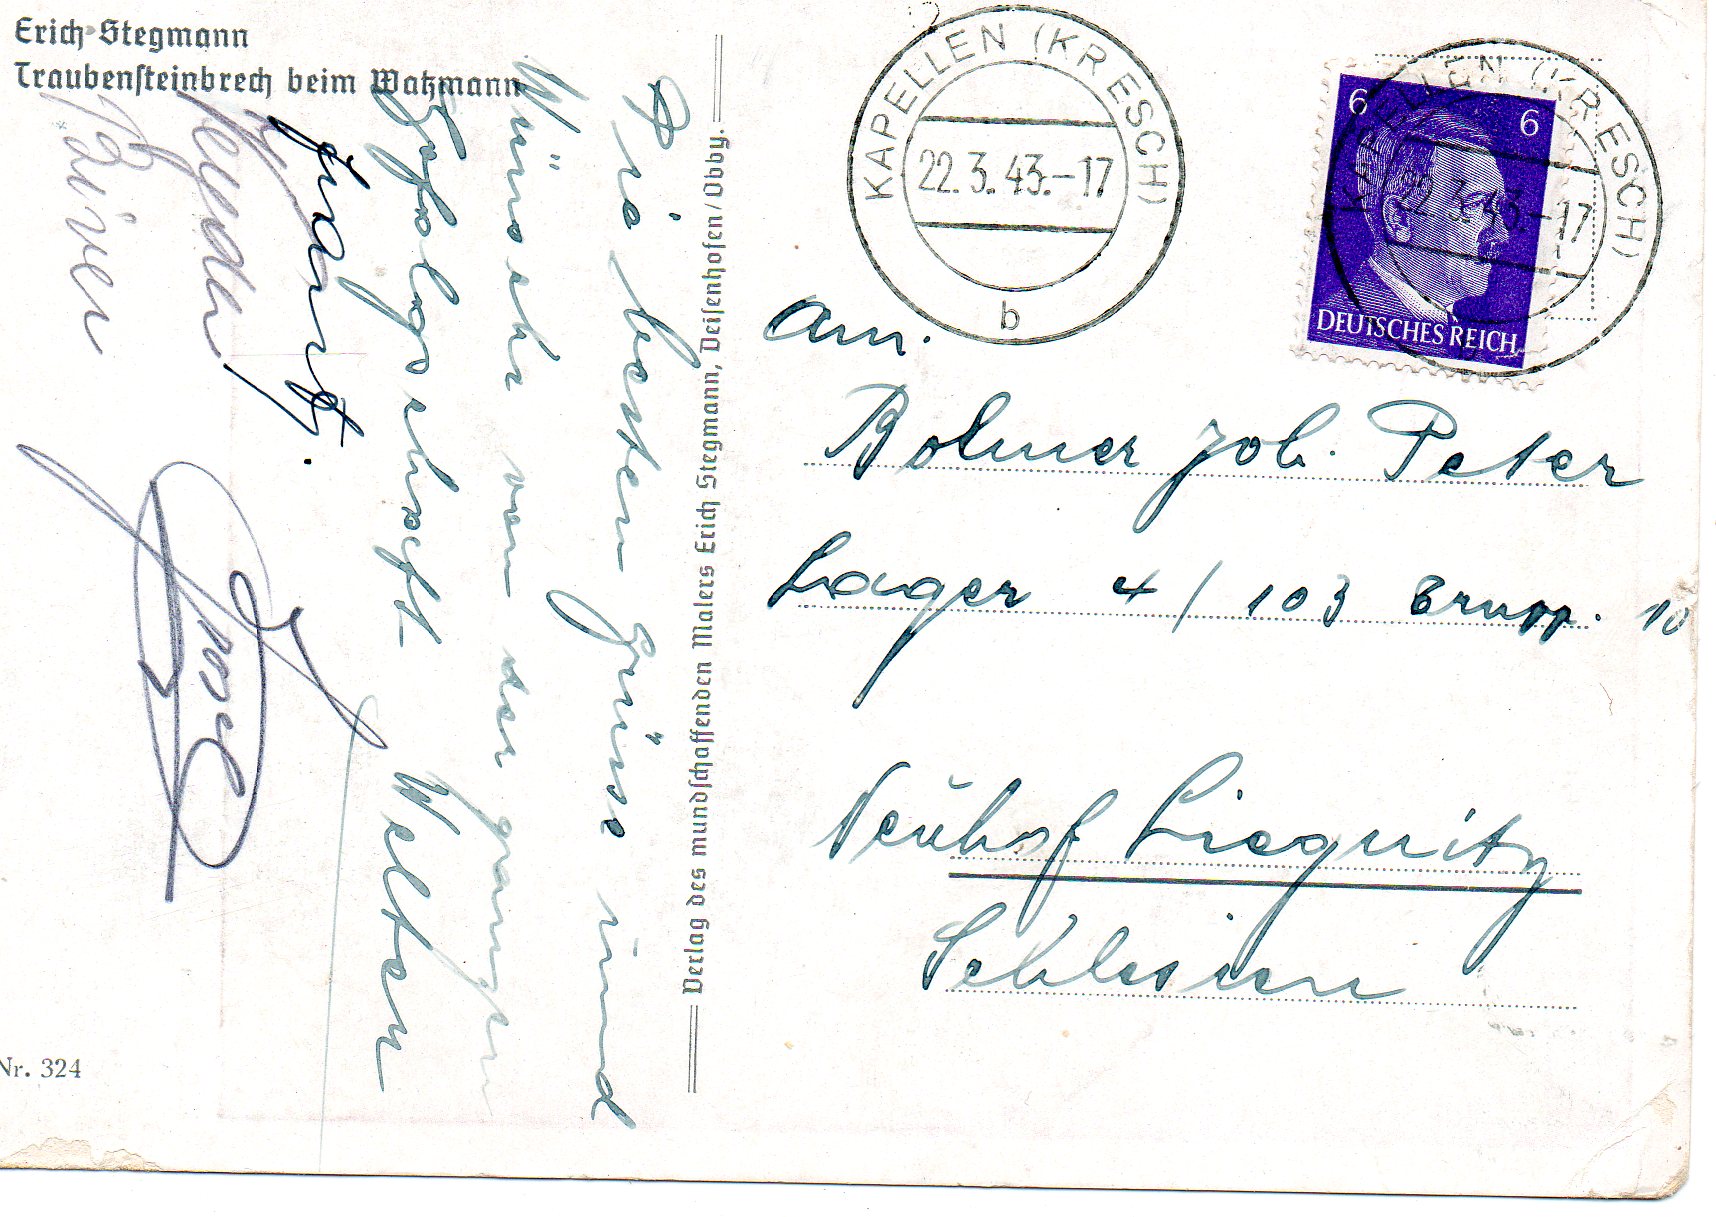 Erich Stegmann
Traubensteinbrech beim Watzmann
Die besten Grüse und
Wünsche von der ganzen
Gefolgschaft
Welten
Frantz.
Nr. 324
Verlag des mundschaffenden Malers Erich Stegmann, Deisenhofen/Obby.
KAPELLEN (KR ESCH)
22.3.43.-17
b
6 6
DEUTSCHES REICH
KAPELLEN (KR ESCH)
22.3.43.-17
b
An.
Bolmer Joh. Peter
Lager 4/103 Grupp. 10
Neuhof Liegnitz
Schlesien